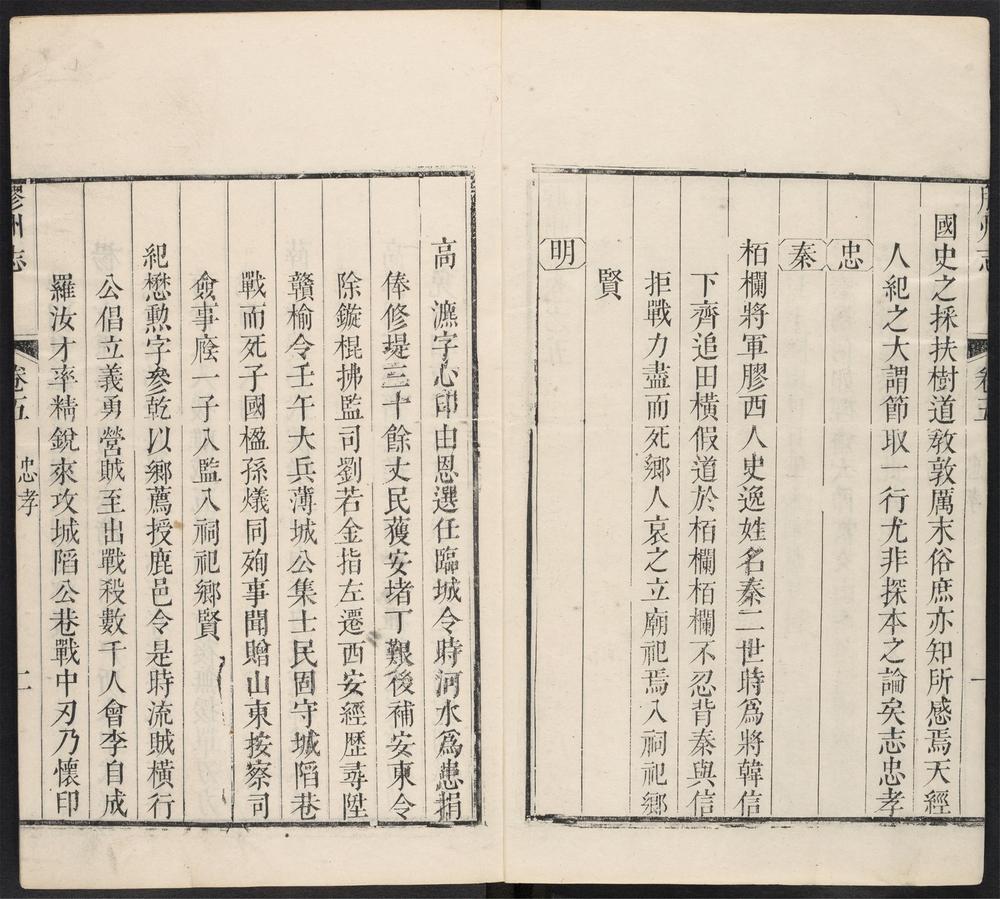 膠州志
卷五
一
國史之採扶樹道教敦厲末俗庶亦知所感焉天經
人紀之大謂節取一行尤非探本之論矣志忠孝
忠
秦
栢欄將軍膠西人史逸姓名秦二世時爲將韓信
下齊追田橫假道於栢欄栢欄不忍背秦與信
拒戰力盡而死鄉人哀之立廟祀焉入祠祀鄉
賢
明
高 㶌字心印由恩選任臨城令時河水爲患捐
俸修堤三十餘丈民獲安堵丁艱後補安東令
除鏇棍拂監司劉若金指左遷西安經歴尋陞
贛榆令壬午大兵薄城公集士民固守城陷巷
戰而死子國楹孫爔同殉事聞贈山東按察司
僉事廕一子入監入祠祀鄉賢
紀懋勲字參乾以鄉薦授鹿邑令是時流賊橫行
公倡立義勇營賊至出戰殺數千人會李自成
羅汝才率精銳來攻城陷公巷戰中刃乃懷印
膠州志
卷五
忠孝
二